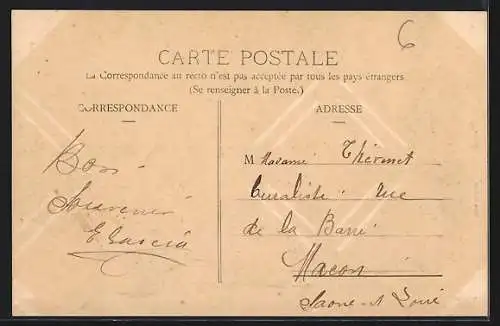 6
CARTE POSTALE
La Correspondance au recto n'est pas acceptée par tous les pays étrangers
(Se renseigner à la Poste.)
CORRESPONDANCE
Bon
Souvenir
E Garcia
ADRESSE
M Madame Thévenet
Buraliste rue
de la Barre
Macon
Saone et Loire